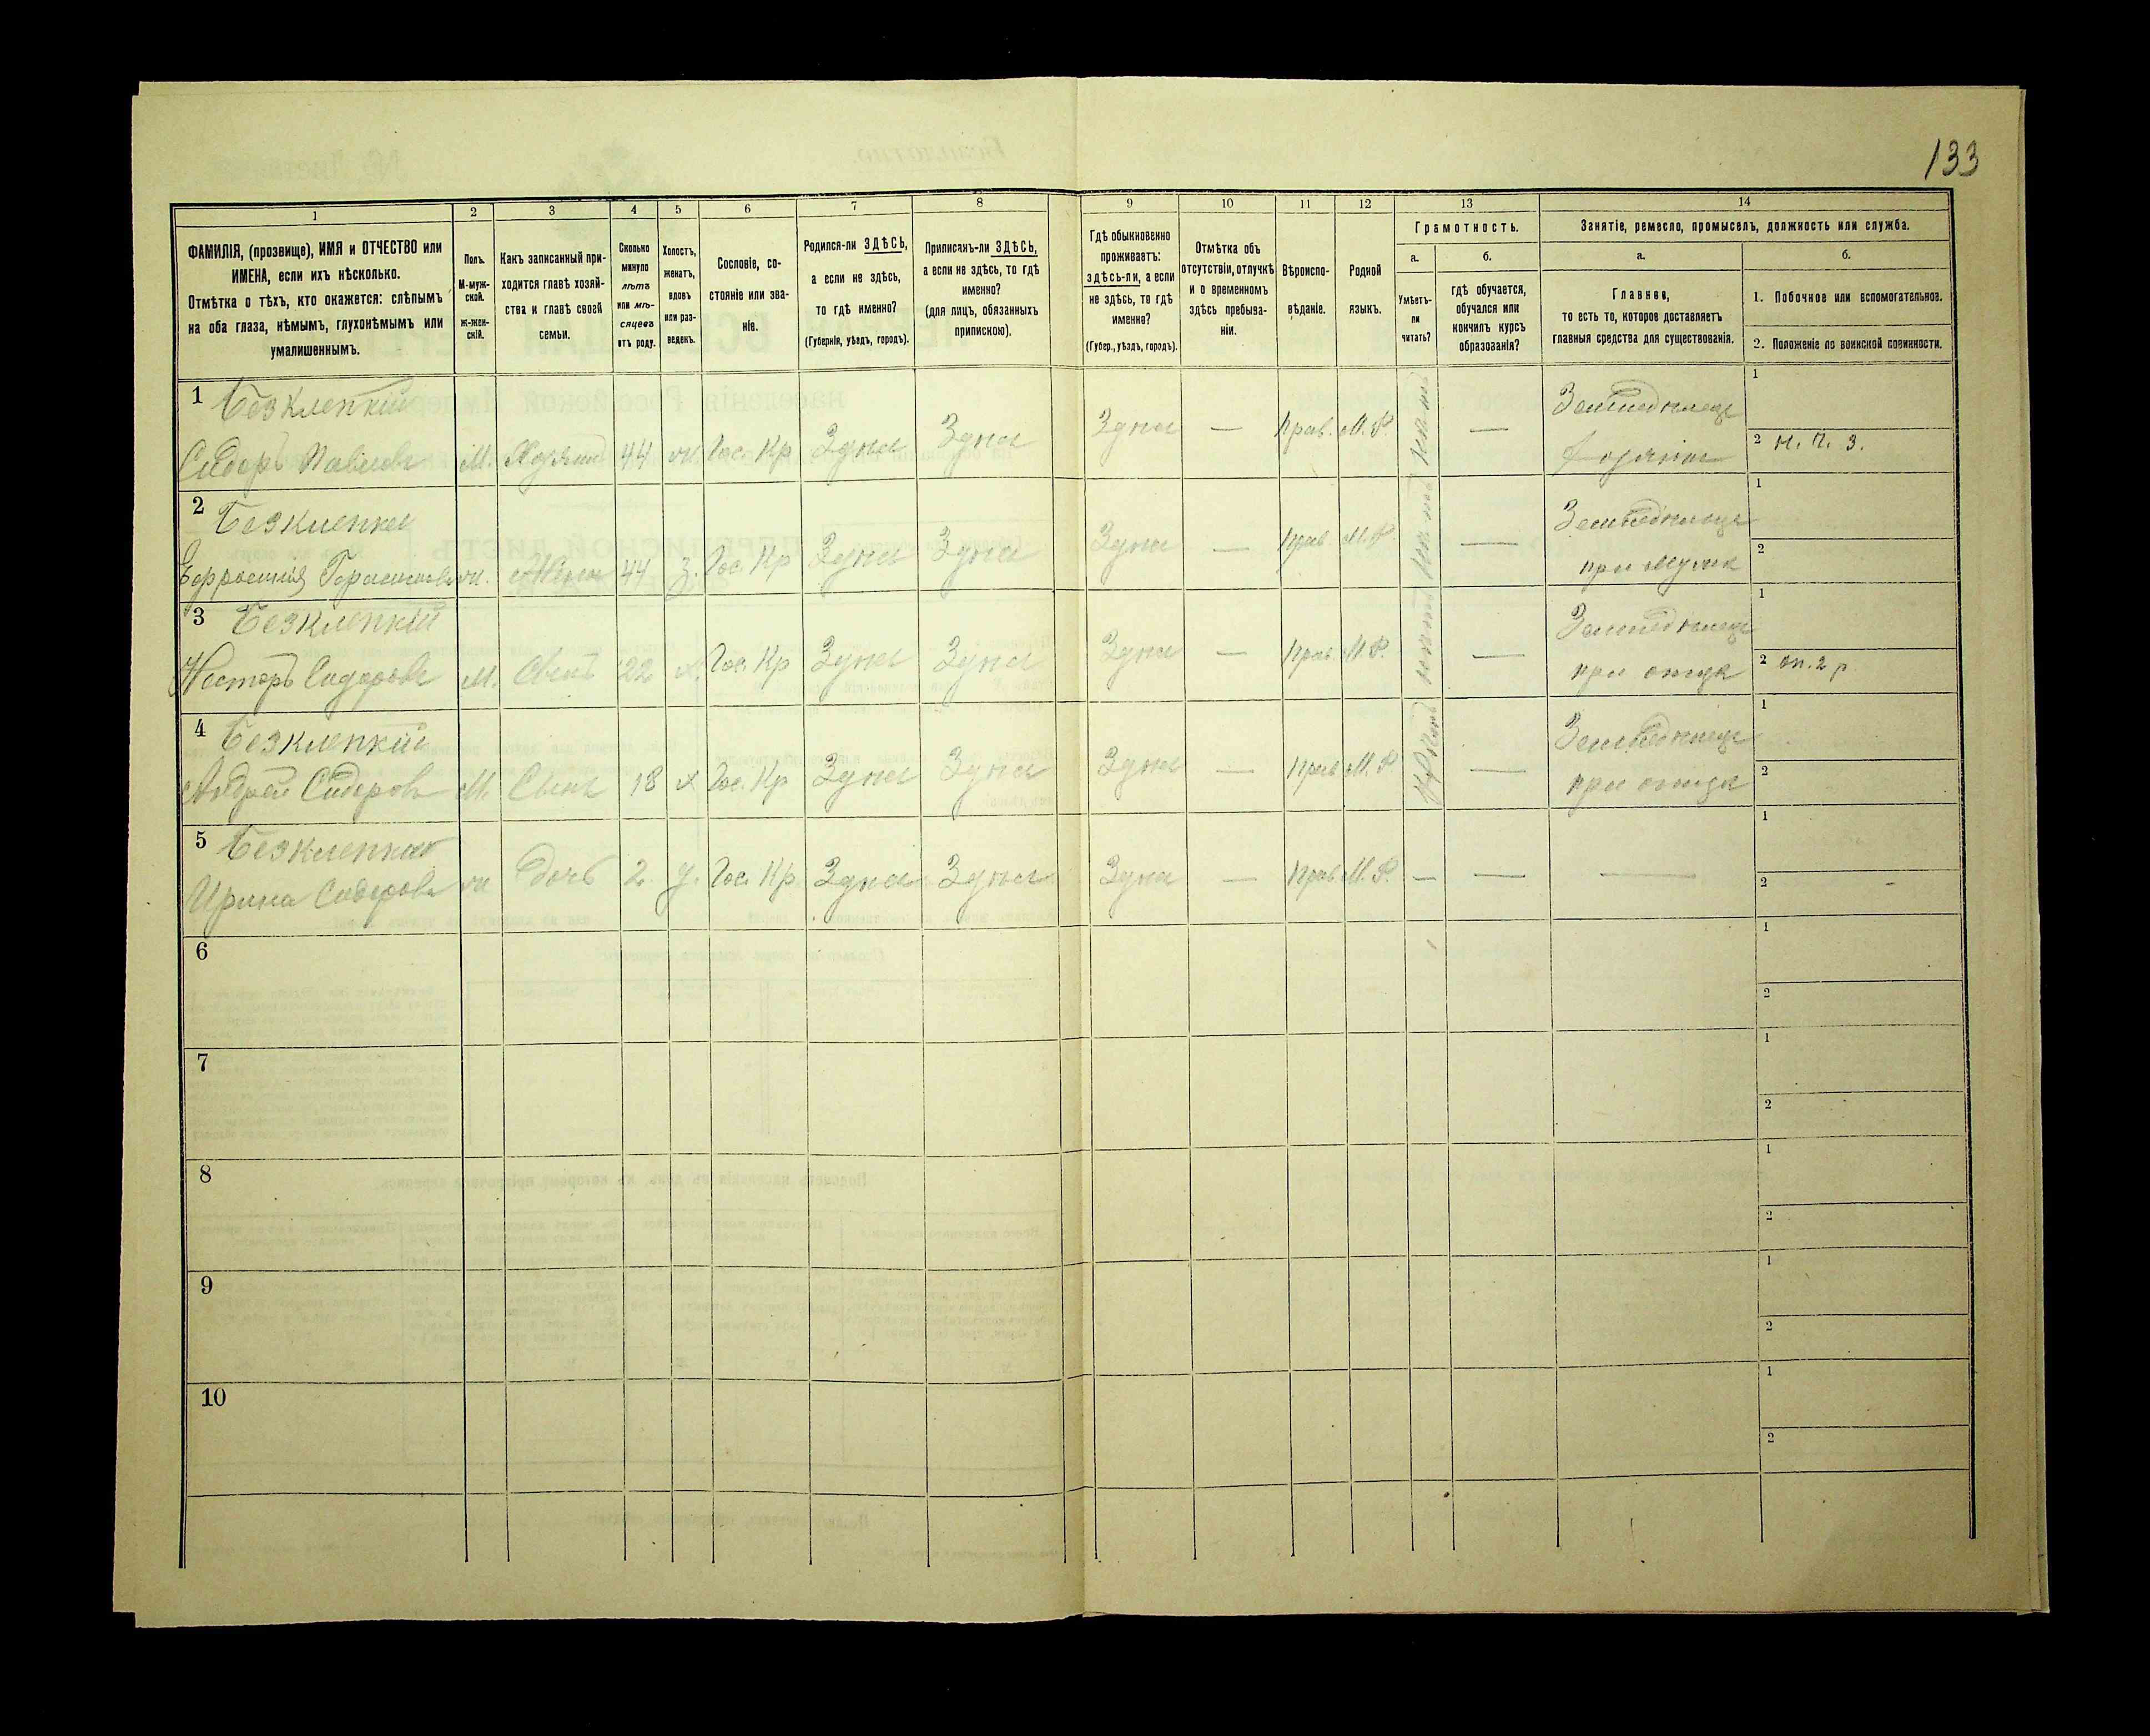 133
1
2
3
4
5
6
7
8
9
10
11
12
13
14
ФАМИЛІЯ, (прозвище), ИМЯ и ОТЧЕСТВО или
ИМЕНА, если ихъ нѣсколько.
Отмѣтка о тѣхъ, кто окажется: слѣпымъ
на оба глаза, нѣмымъ, глухонѣмымъ или
умалишеннымъ.
Полъ.
М-муж-
ской.
Ж-жен-
скій.
Какъ записанный при-
ходится главѣ хозяй-
ства и главѣ своей
семьи.
Сколько
минуло
лѣтъ
или мѣ-
сяцевъ
отъ роду.
Холостъ,
женатъ,
вдовъ
или раз-
веденъ.
Сословіе, со-
стояніе или зва-
ніе.
Родился-ли ЗДѢСЬ,
а если не здѣсь,
то гдѣ именно?
(Губернія, уѣздъ, городъ).
Приписанъ-ли ЗДѢСЬ,
а если не здѣсь, то гдѣ
именно?
(для лицъ, обязанныхъ
припискою).
Гдѣ обыкновенно
проживаетъ:
здѣсь-ли, а если
не здѣсь, то гдѣ
именно?
(Губер., уѣздъ, городъ).
Отмѣтка объ
отсутствіи, отлучкѣ
и о временномъ
здѣсь пребыва-
ніи.
Вѣроиспо-
вѣданіе.
Родной
языкъ.
Грамотность.
а.
Умѣетъ-
ли
читать?
б.
гдѣ обучается,
обучался или
кончилъ курсъ
образованія?
Занятіе, ремесло, промыселъ, должность или служба.
а.
Главное,
то есть то, которое доставляетъ
главныя средства для существованія.
б.
1. Побочное или вспомогательное.
2. Положеніе по воинской повинности.
1 Безклепкій
Сидоръ Павловъ М. Хозяинъ 44 ж Гос. Кр Здѣсь Здѣсь Здѣсь — Прав. М. Р. нѣтъ — Земледѣлецъ
хозяинъ
1
2 н. ч. 3.
2 Безклепкая
Ефросинія Герасимова ж. Жена 44 З. Гос. Кр Здѣсь Здѣсь Здѣсь — Прав М. Р нѣтъ — Земледѣлецъ
при мужѣ
1
2
3 Безклепкій
Несторъ Сидоровъ М. Сынъ 22 х. Гос. Кр Здѣсь Здѣсь Здѣсь — Прав М. Р. нѣтъ — Земледѣлецъ
при отцѣ
1
2 оп. 2 р
4 Безклепкій
Андрей Сидоровъ М. Сынъ 18 х Гос. Кр Здѣсь Здѣсь Здѣсь — Прав М. Р — Земледѣлецъ
при отцѣ
1
2
5 Безклепкая
Ирина Сидорова ж Дочь 2 д. Гос. Кр Здѣсь Здѣсь Здѣсь — Прав М. Р. — — —
1
2
6
1
2
7
1
2
8
1
2
9
1
2
10
1
2